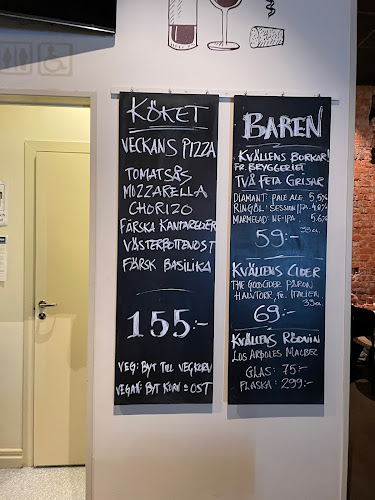 KÖKET
VECKANS PIZZA
TOMATSÅS
MOZZARELLA
CHORIZO
FÄRSKA KANTARELLER
VÄSTERBOTTENOST
FÄRSK BASILIKA
155:-
VEG: BYT TILL VEGKORV
VEGAN: BYT KORV & OST
BAREN
KVÄLLENS BURKAR!
FR. BRYGGERIET
TVÅ FETA GRISAR
DIAMANT: PALE ALE. 5,5%
RINGÖL: SESSION IPA 4.8%
MARMELAD: NE-IPA. 5.6%
33cl
59:-
KVÄLLENS CIDER
THE GOOD CIDER PÄRON
FR. ITALIEN
33cl
69:-
KVÄLLENS RÖDVIN
LOS ARDOLES MALBEC
GLAS: 75:-
FLASKA: 299:-